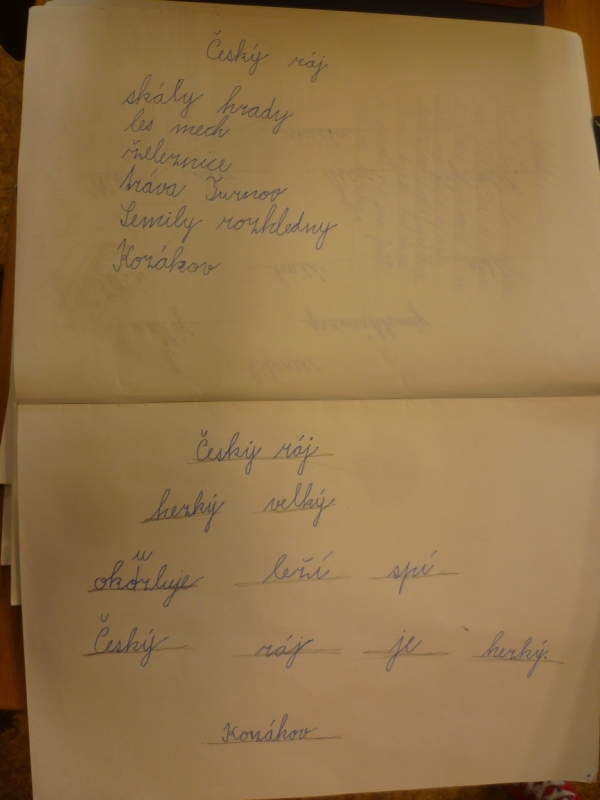 Český ráj
skály hrady
les mech
železnice
tráva Turnov
Semily rozhledny
Kozákov
Český ráj
hezký velký
u
okozluje leží spí
Český ráj je hezký.
Kozákov